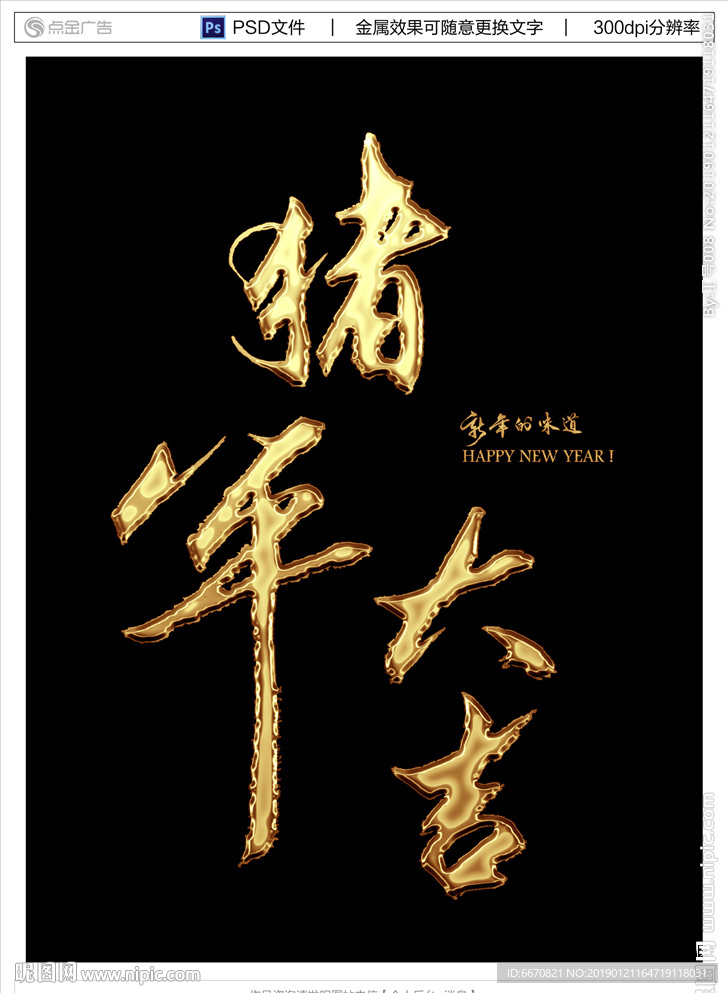 点金广告
Ps PSD文件 | 金属效果可随意更换文字 | 300dpi分辨率
猪
年
大
吉
新年的味道
HAPPY NEW YEAR !
昵图网 www.nipic.com
ID:6670821 NO:20190121164719118031
www.nipic.com